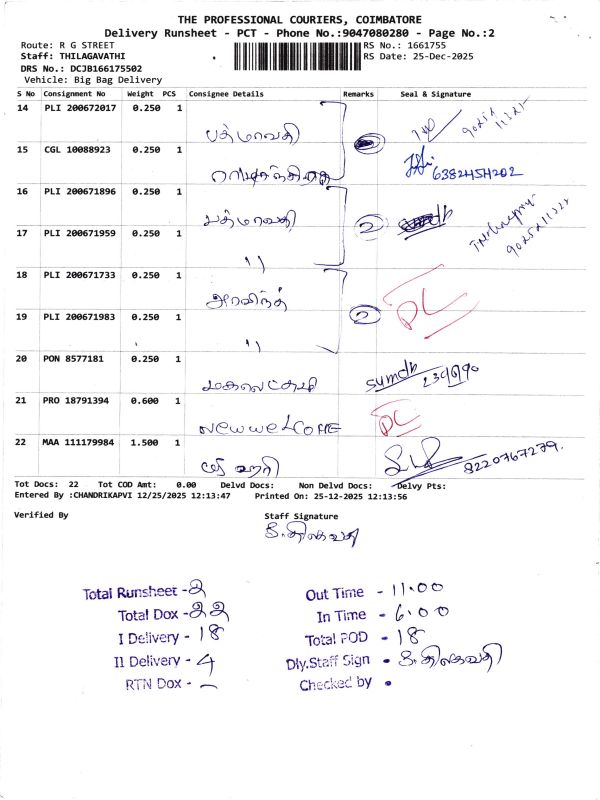 THE PROFESSIONAL COURIERS, COIMBATORE
Delivery Runsheet - PCT - Phone No.:9047080280 - Page No.:2
Route: R G STREET RS No.: 1661755
Staff: THILAGAVATHI RS Date: 25-Dec-2025
DRS No.: DCJB166175502
Vehicle: Big Bag Delivery
S No Consignment No Weight PCS Consignee Details Remarks Seal & Signature
14 PLI 200672017 0.250 1
பத்மாவதி
15 CGL 10088923 0.250 1
6382454202
16 PLI 200671896 0.250 1
பத்மாவதி 2
17 PLI 200671959 0.250 1
"
18 PLI 200671733 0.250 1
அரவிந்த் DC
19 PLI 200671983 0.250 1 2
"
20 PON 8577181 0.250 1
மகாலட்சுமி
21 PRO 18791394 0.600 1 DC
NEWWELCOME
22 MAA 111179984 1.500 1
ஸ்ரீ ஹரி 8220767279.
Tot Docs: 22 Tot COD Amt: 0.00 Delvd Docs: Non Delvd Docs: Delvy Pts:
Entered By :CHANDRIKAPVI 12/25/2025 12:13:47 Printed On: 25-12-2025 12:13:56
Verified By Staff Signature
S.திலகவதி
Total Runsheet - 2 Out Time - 11.00
Total Dox - 22 In Time - 6.00
I Delivery - 18 Total POD - 18
II Delivery - 4 Dly.Staff Sign - S.திலகவதி
RTN Dox - – Checked by -